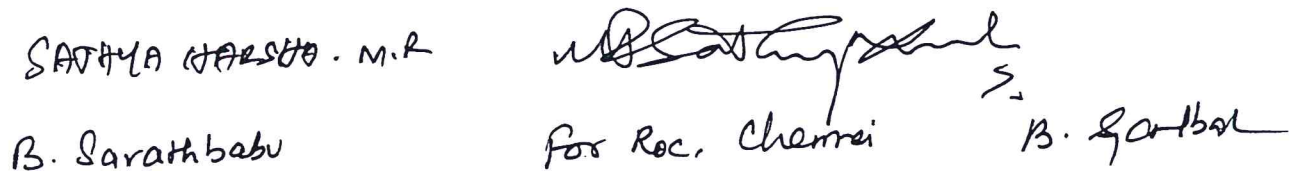 SATHYA HARSHA. M.R
S.
B. Sarathbabu For Roc, Chennai B.